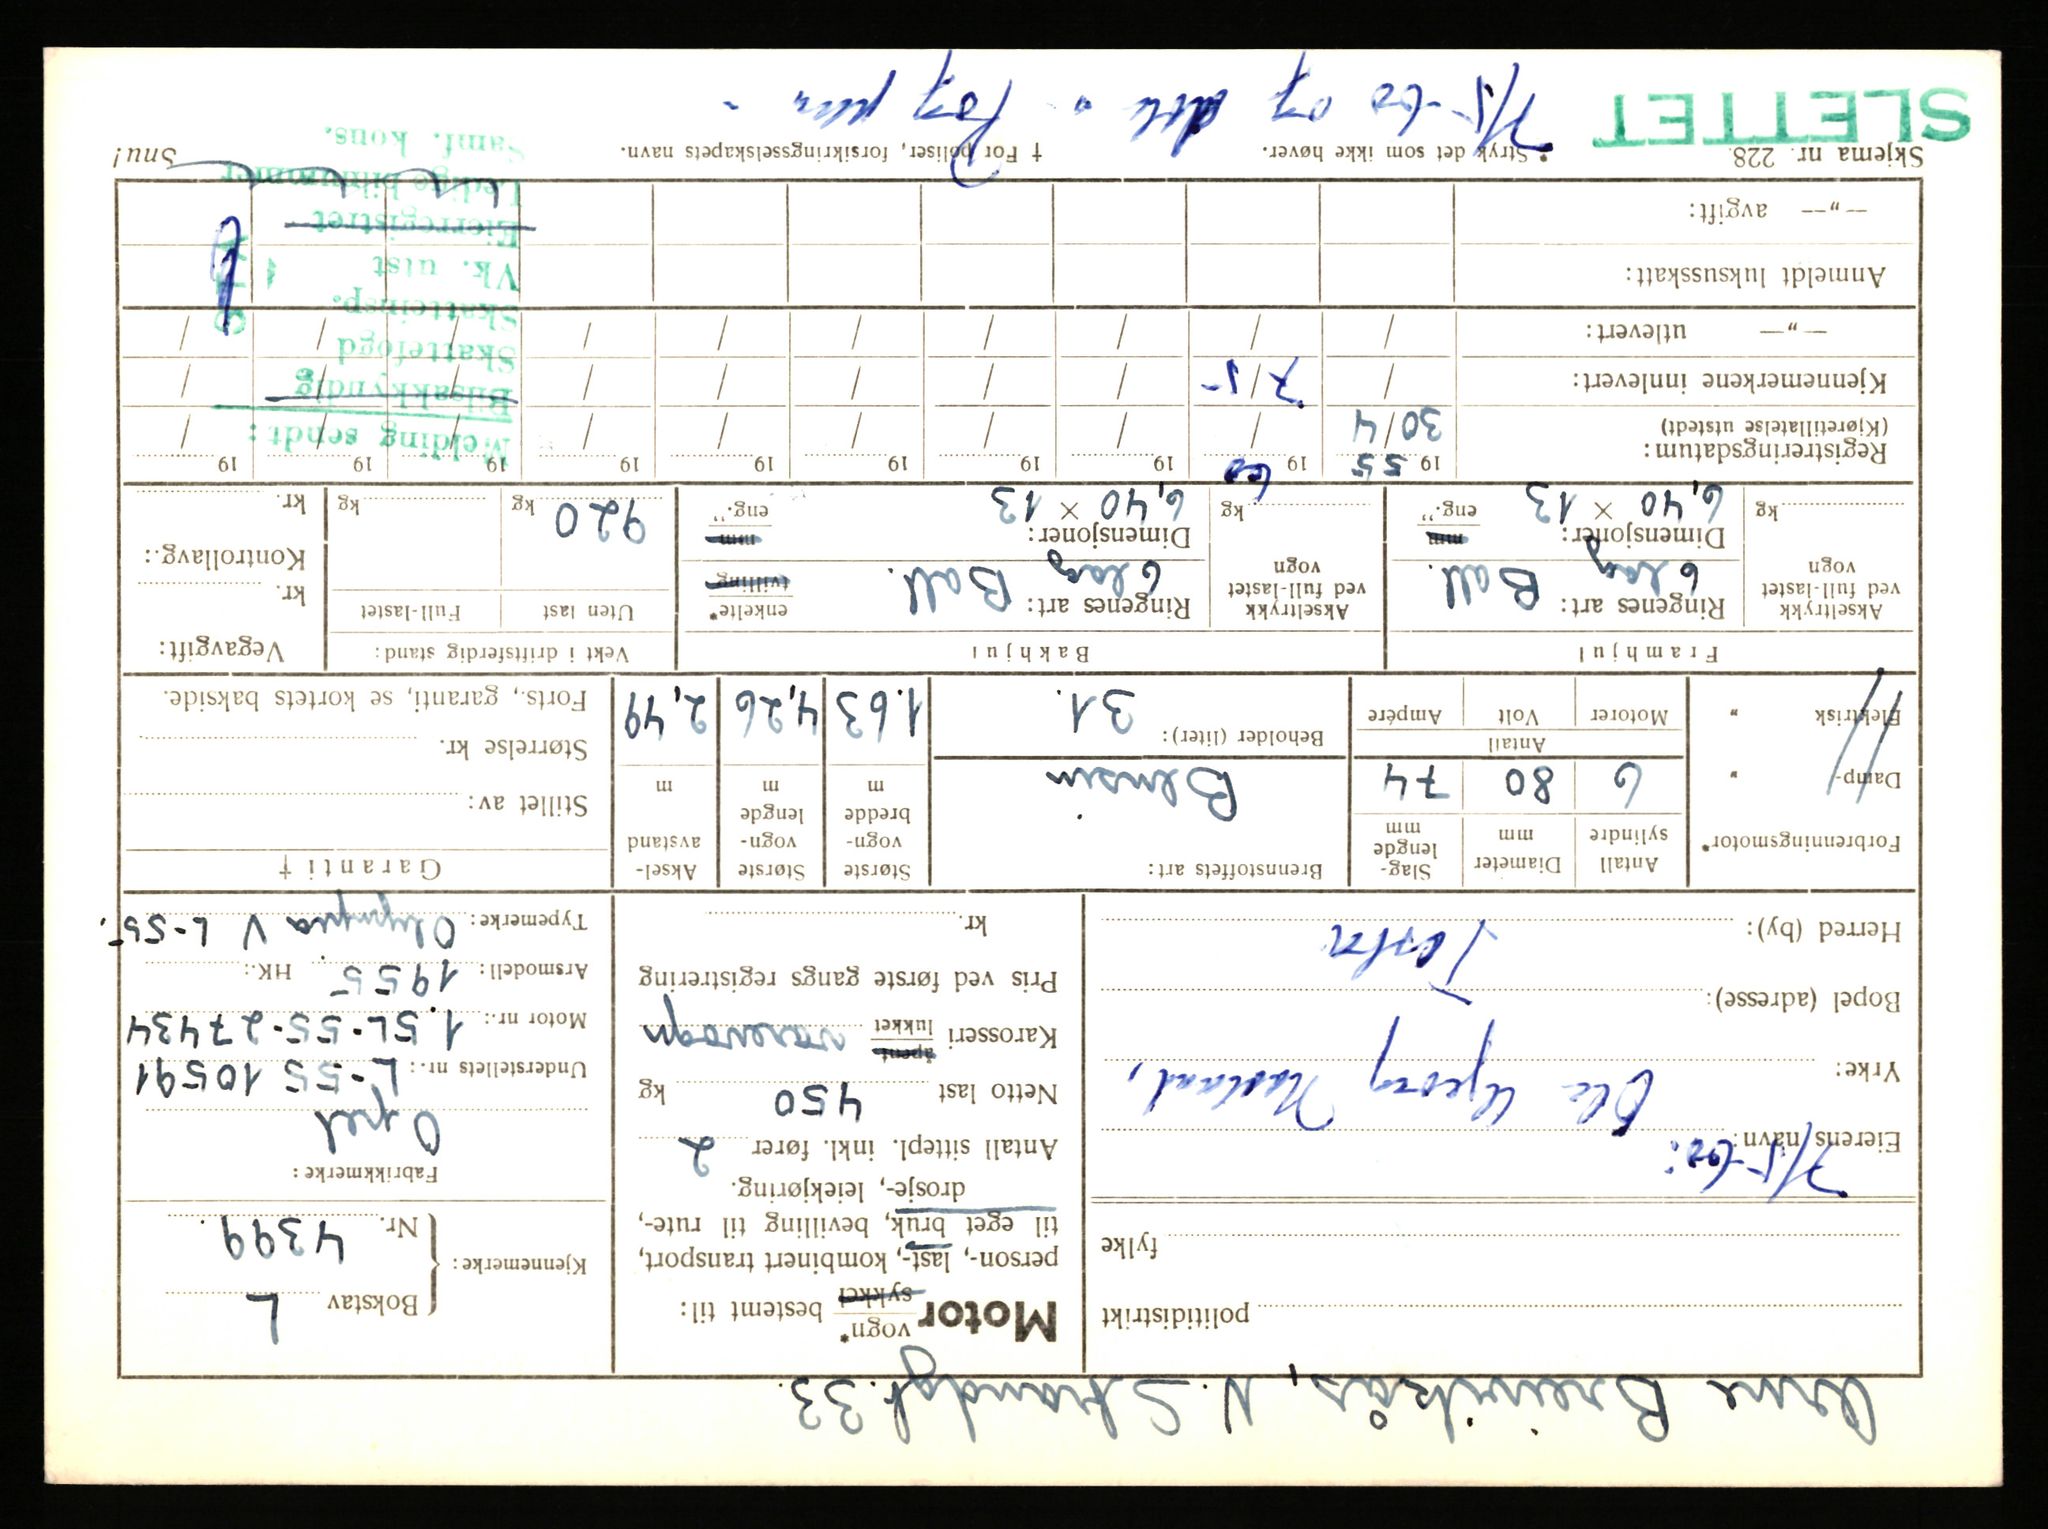 Arne Breivikås, N. Strandgt. 33.
politidistrikt
fylke
7/5-60:
Eierens navn: Ole Georg Nœsland,
Yrke:
Bopel (adresse):
Herred (by):
Motor vogn* sykkel bestemt til:
person-, last-, kombinert transport,
til eget bruk, bevilling til rute-,
drosje-, leiekjøring.
Antall sittepl. inkl. fører 2
Netto last 450 kg
Karosseri åpent lukket varevogn
Pris ved første gangs registrering
kr.
Kjennemerke: Bokstav L
Nr. 4399.
Fabrikkmerke:
Opel
Understellets nr.: L-55 10591
Motor nr.: 1.5L-55-27434
Årsmodell: 1955 HK.:
Typemerke: Olympia V L-55.
Forbrenningsmotor*
Damp- „
Elektrisk „
Antall sylindre 6
Diameter mm 80
Slaglengde mm 74
Antall
Motorer Volt Ampére
Brennstoffets art: Bensin
Beholder (liter): 31.
Største vognbredde m 1.63
Største vognlengde m 4,26
Akselavstand m 2,49
Garanti †
Stillet av:
Størrelse kr.
Forts., garanti, se kortets bakside.
Framhjul
Akseltrykk ved full-lastet vogn kg
Ringenes art: 6 lag Ball.
Dimensjoner: 6,40 × 13 mm eng.”
Bakhjul
Akseltrykk ved full-lastet vogn kg
Ringenes art: 6 lag Ball. enkelte* tvilling
Dimensjoner: 6,40 × 13 mm eng.”
Vekt i driftsferdig stand:
Uten last Full-lastet
920 kg kg
Vegavgift:
kr.
Kontrollavg.:
kr.
Registreringsdatum: 19 55 19 60 19 19 19 19 19 19 19 19
(Kjøretillatelse utstedt) 30/4 / / / / / / / / /
Kjennemerkene innlevert: / 7/5 / / / / / / / /
—„— utlevert: / / / / / / / / / /
Anmeldt luksusskatt:
—„— avgift:
Melding sendt:
Bilsakkyndig
Skattefogd
Skatteinsp.
Vk. utst
Eierregistret
Ledige bilnummer
Samf. kons.
Skjema nr. 228.
* Stryk det som ikke høver.
† For poliser, forsikringsselskapets navn.
Snu!
SLETTET
7/5-60 og